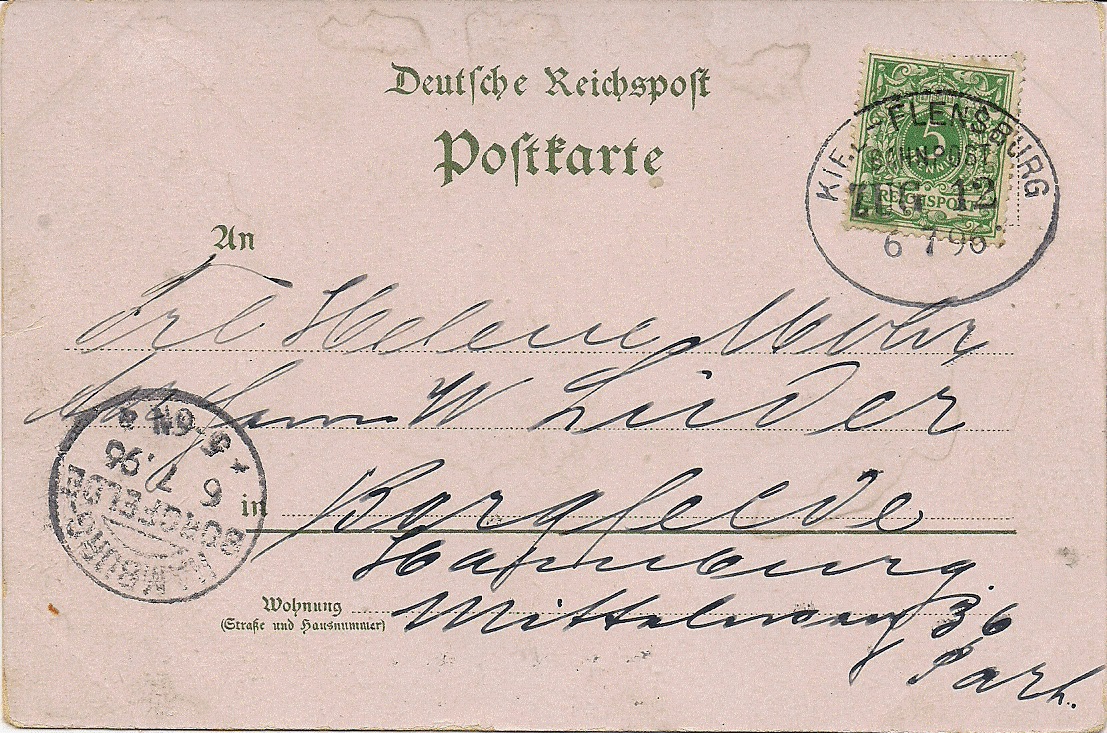 Deutsche Reichspost
Postkarte
5
REICHSPOST
KIEL-FLENSBURG
BAHNPOST
ZUG 12
6 7 96
An
Frl Helene Mohr
W Lüder
in Borgfelde
Hamburg
Wohnung Mittelweg 36
(Straße und Hausnummer)
Parh.
HAMBURG-
BORGFELDE
6 7. 96
* 5-6N